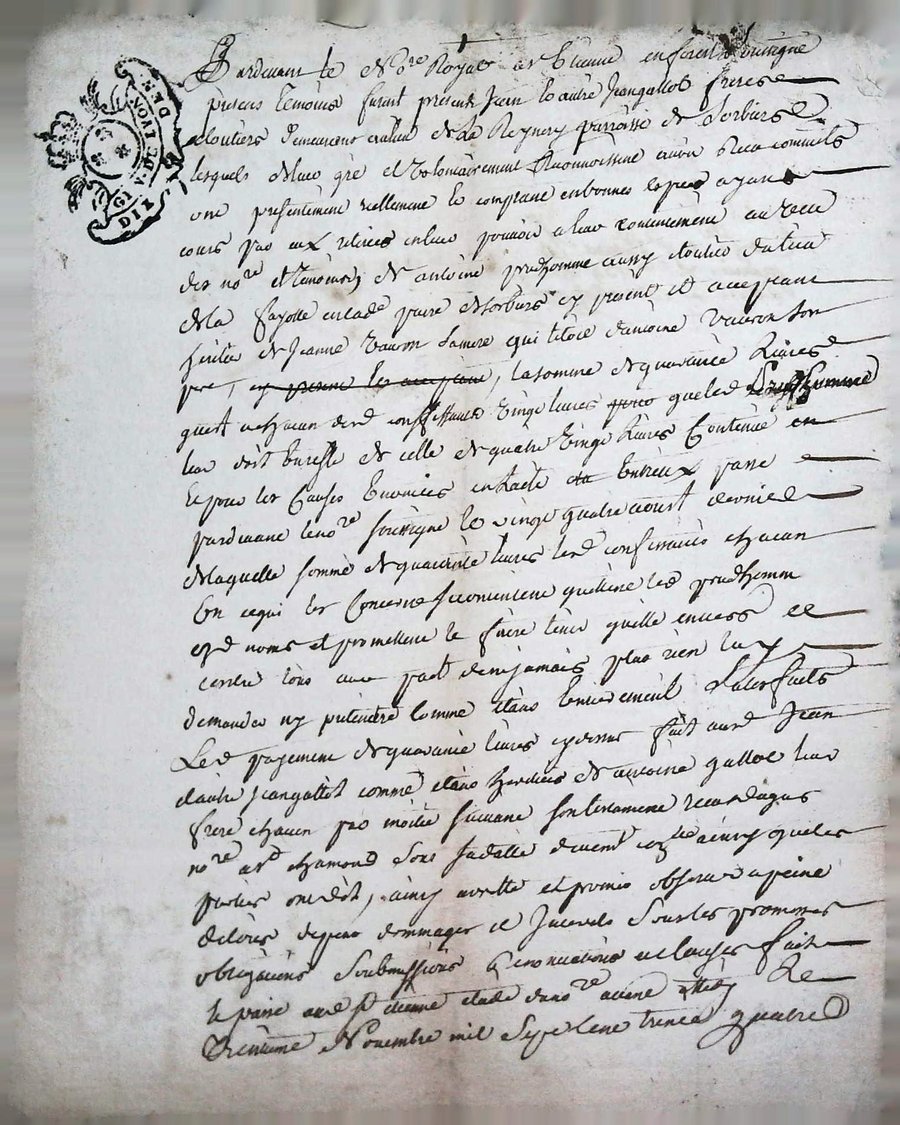 GEN. DE LION
DIX DEN.
Pardevant le No.re Royal a st Etienne en forest soussigné
presens temoins furent presents Jean et autre Jean gallot freres
cloutiers demeurans au lieu de la Reynery parroisse de Sorbiers
lesquels de leur gré et volontairement Reconnoissent avoir
presentement reellement et comptant en bonnes especes ayant
cours par eux retirés en leur pouvoir a leur contentement au veu
des no.re et temoins de antoine prudhomme aussy cloutier du lieu
de la fayolle en lad. parre de Sorbiers cy present et acceptant
heritier de Jeanne vauron sa mere qui l'etoit d'antoine vauron son
pere, la somme de quarante livres
qu'est a chacun desd. confessants vingt livres que led. prudhomme
leur doit de reste de celle de quatre vingt livres Contenue en
et pour les Causes enoncées en l'acte entreux passé
pardevant le no.re soussigné le vingt quatre aoust dernier
de laquelle somme de quarante livres lesd. confessants chacun
en ce qui les Concerne se contentent quittent led. prudhomme
esd. noms et promettent le faire tenir quitte envers et
contre tous avec pact de ne jamais plus rien luy
demander ny pretendre comme etans entierement Satisfaits
Led. payement de quarante livres cy dessus fait auxd. Jean
et autre Jean gallot comme etans heritiers de antoine gallot leur
frere chacun par moitié suivant son testament receu dagas
no.re a st chamond Sous sa datte ainsy que les
parties ont dit, ainsy arretté et promis observer a peine
de tous depens dommages et Interets Sous les promesses
obligations Soubmissions Renonciations et clauses fait
et passé aud. st etienne etude dud. no.re avant midy Le
trentieme Novembre mil Sept cent trente quatre